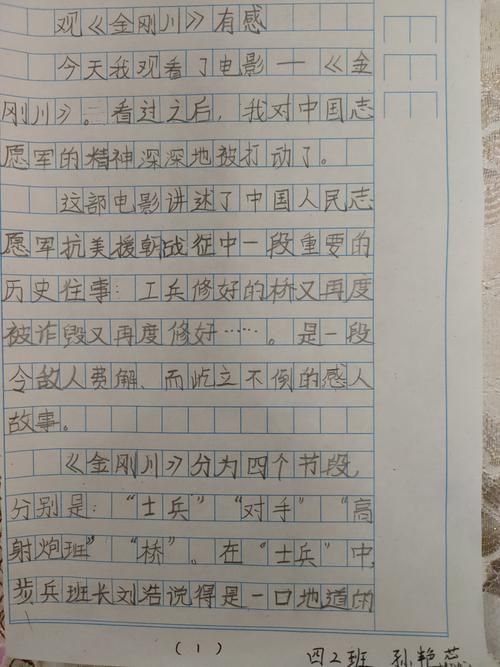 观《金刚川》有感
今天我观看了电影一《金
刚川》。看过之后，我对中国志
愿军的精神深深地被打动了。
这部电影讲述了中国人民志
愿军抗美援朝战征中一段重要的
历史往事：工兵修好的桥又再度
被诈毁又再度修好……。是一段
令敌人费解、而屹立不倒的感人
故事。
《金刚川》分为四个节段，
分别是：“士兵”“对手”“高
射炮班”“桥”。在“士兵”中，
步兵班长刘浩说得是一口地道的
(1)
四2班 孙艳蕊